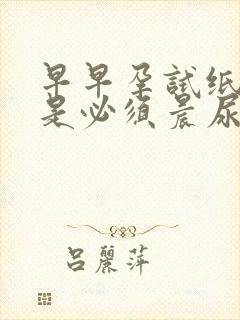 早早孕試纸
是必須晨尿
吕麗萍